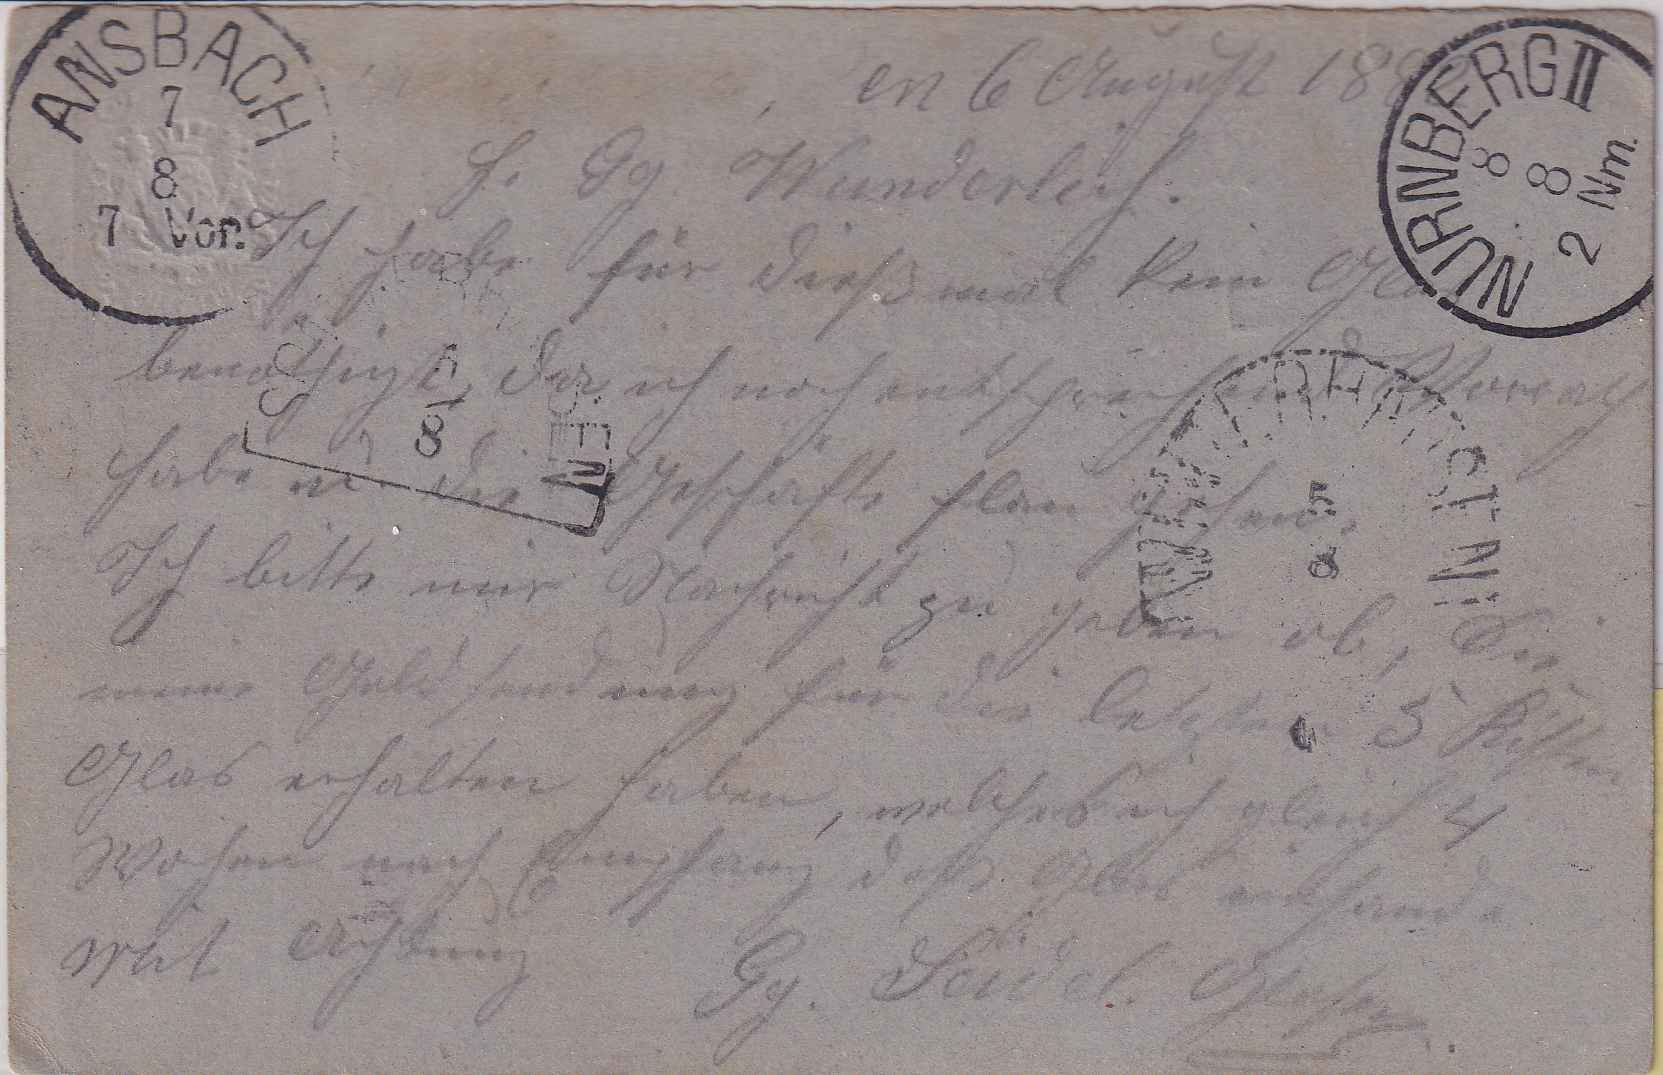 ANSBACH
7
8
7 Vor.
NÜRNBERG II
8
8
2 Nm.
en 6 August 188
H. Gg Wunderlich.
Ich habe für dießmal kein Gla
benöthigt, da ich noch entsprechend Vorrath
habe u. die Geschäfte flau gehen.
Ich bitte mir Nachricht zu geben ob, Sie
meine Geldsendung für die letzten 5 Kisten
Glas erhalten haben, welches ich gleich 4
Wochen nach Empfang deß Glas
Mit Achtung
Gg. Seidel. Glaser
8
NEN
5
8